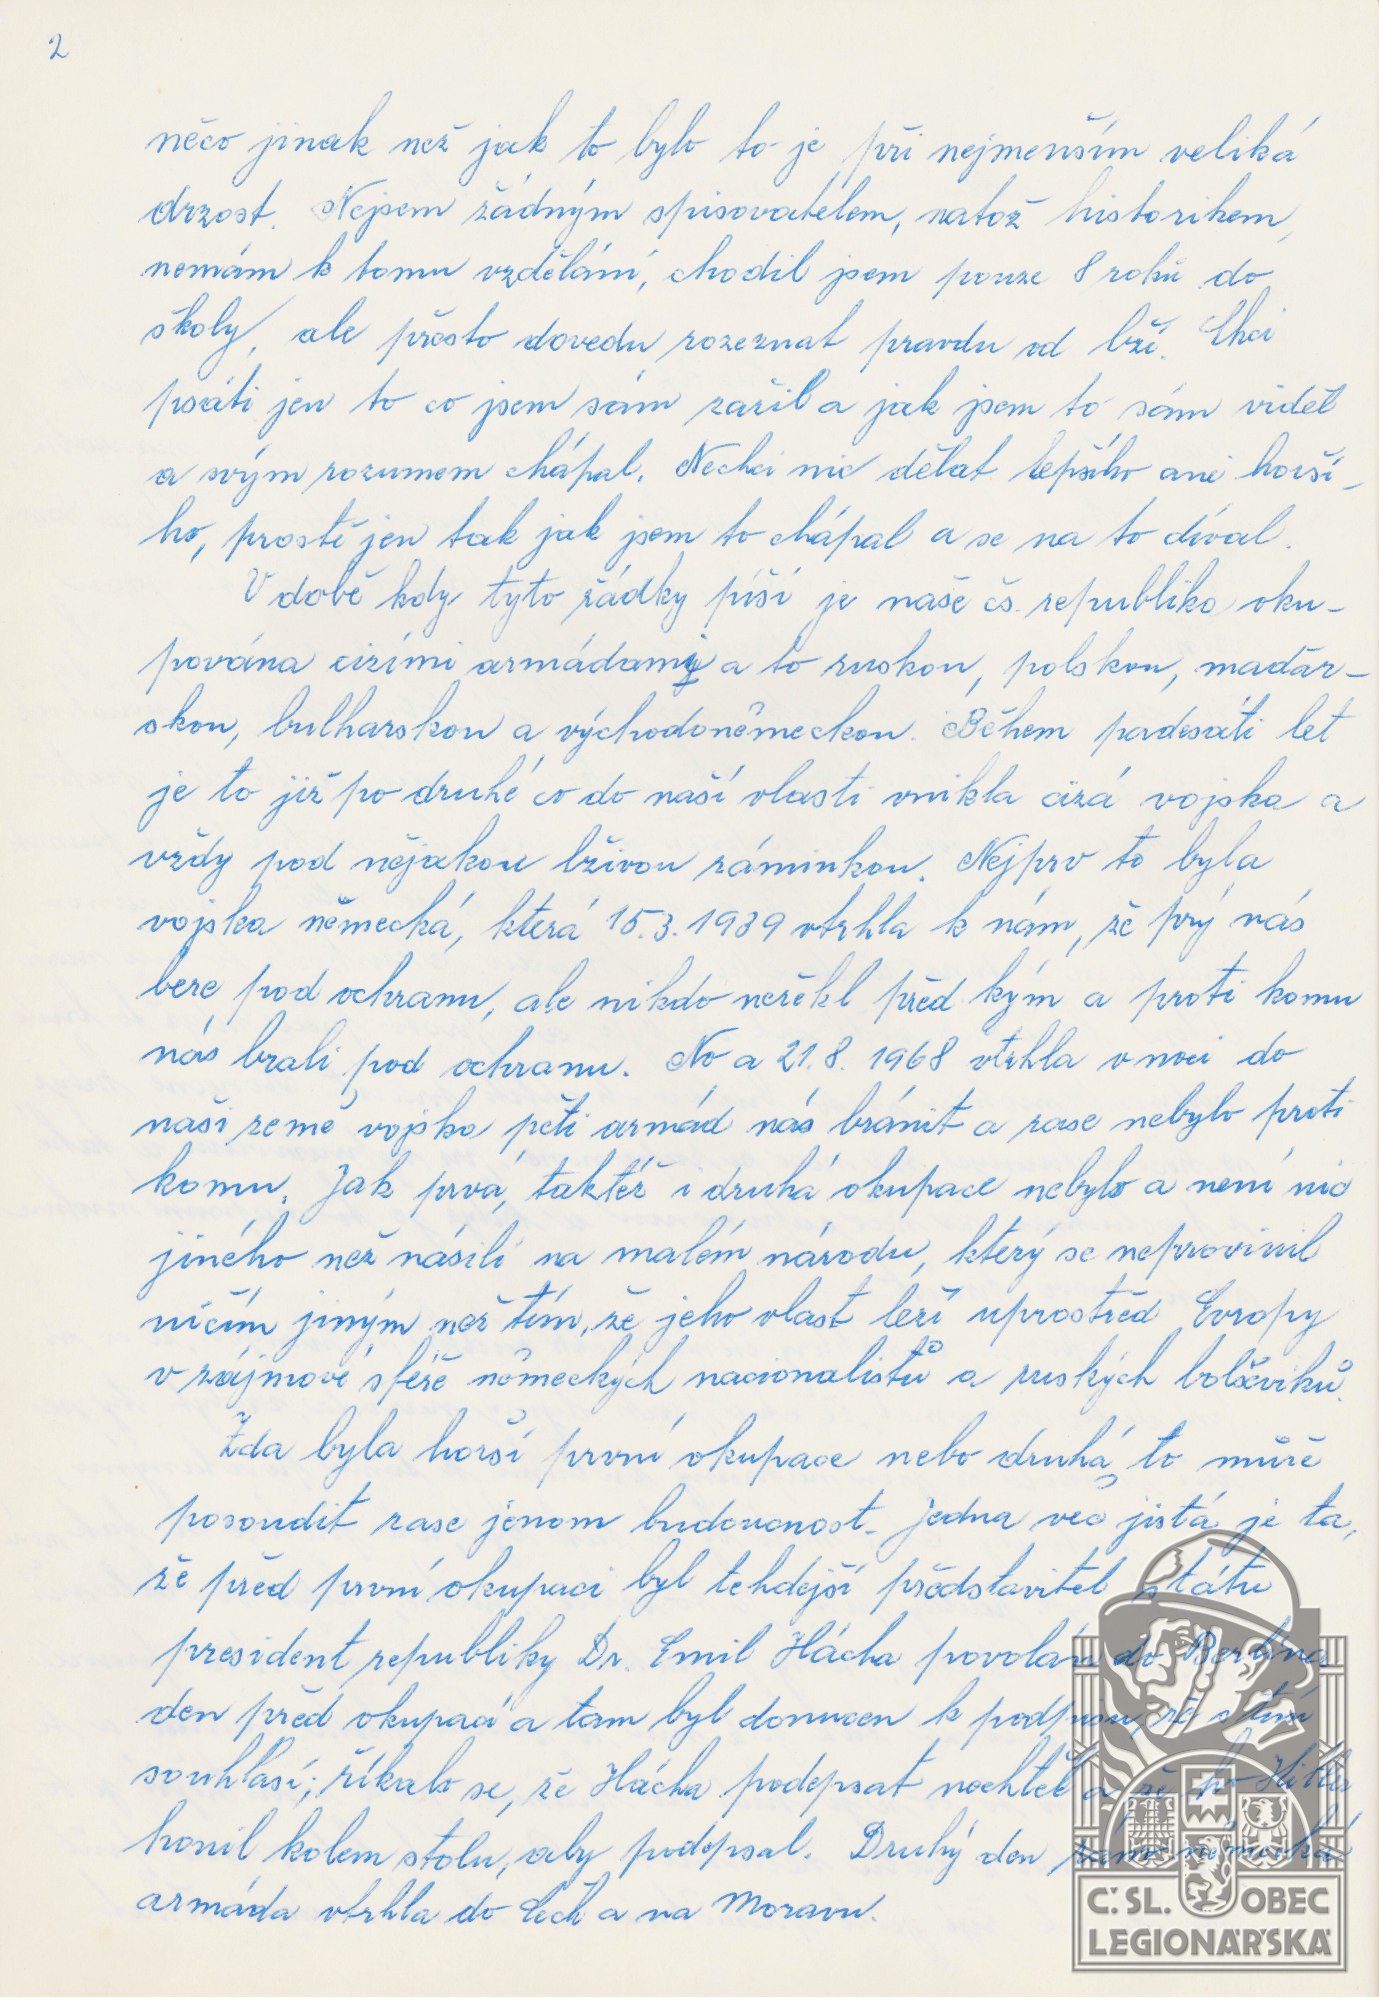 2
něco jinak než jak to bylo to je při nejmenším veliká
drzost. Nejsem žádným spisovatelem, natož historikem,
nemám k tomu vzdělání, chodil jsem pouze 8 roků do
školy, ale přesto dovedu rozeznat pravdu od lži. Chci
psáti jen to co jsem sám zažil a jak jsem to sám viděl
a svým rozumem chápal. Nechci nic dělat lepšího ani horší-
ho, prostě jen tak jak jsem to chápal a se na to díval.
V době kdy tyto řádky píši je naše čs. republika oku-
pována cizími armádami a to ruskou, polskou, maďar-
skou, bulharskou a východoněmeckou. Během padesáti let
je to již po druhé co do naší vlasti vnikla cizá vojska a
vždy pod nějakou lživou záminkou. Nejprv to byla
vojska německá, která 15.3.1939 vtrhla k nám, že prý nás
bere pod ochranu, ale nikdo neřekl před kým a proti komu
nás brali pod ochranu. No a 21.8.1968 vtrhla v noci do
naši země vojska pěti armád nás bránit a zase nebylo proti
komu. Jak prvá, taktéž i druhá okupace nebylo a není nic
jiného než násilí na malém národu, který se neprovinil
ničím jiným než tím, že jeho vlast leží uprostřed Evropy
v zájmové sféře německých nacionalistů a ruských bolševiků.
Zda byla horší první okupace nebo druhá, to může
posoudit zase jenom budoucnost. Jedna věc jistá je ta,
že před první okupací byl tehdejší představitel státu
president republiky Dr. Emil Hácha povolán do Berlína
den před okupací a tam byl donucen k podpisu, že s tím
souhlasí; říkalo se, že Hácha podepsat nechtěl a že ho Hitler
honil kolem stolu, aby podepsal. Druhý den ráno německá
armáda vtrhla do Čech a na Moravu.
Č.SL. OBEC
LEGIONÁŘSKÁ